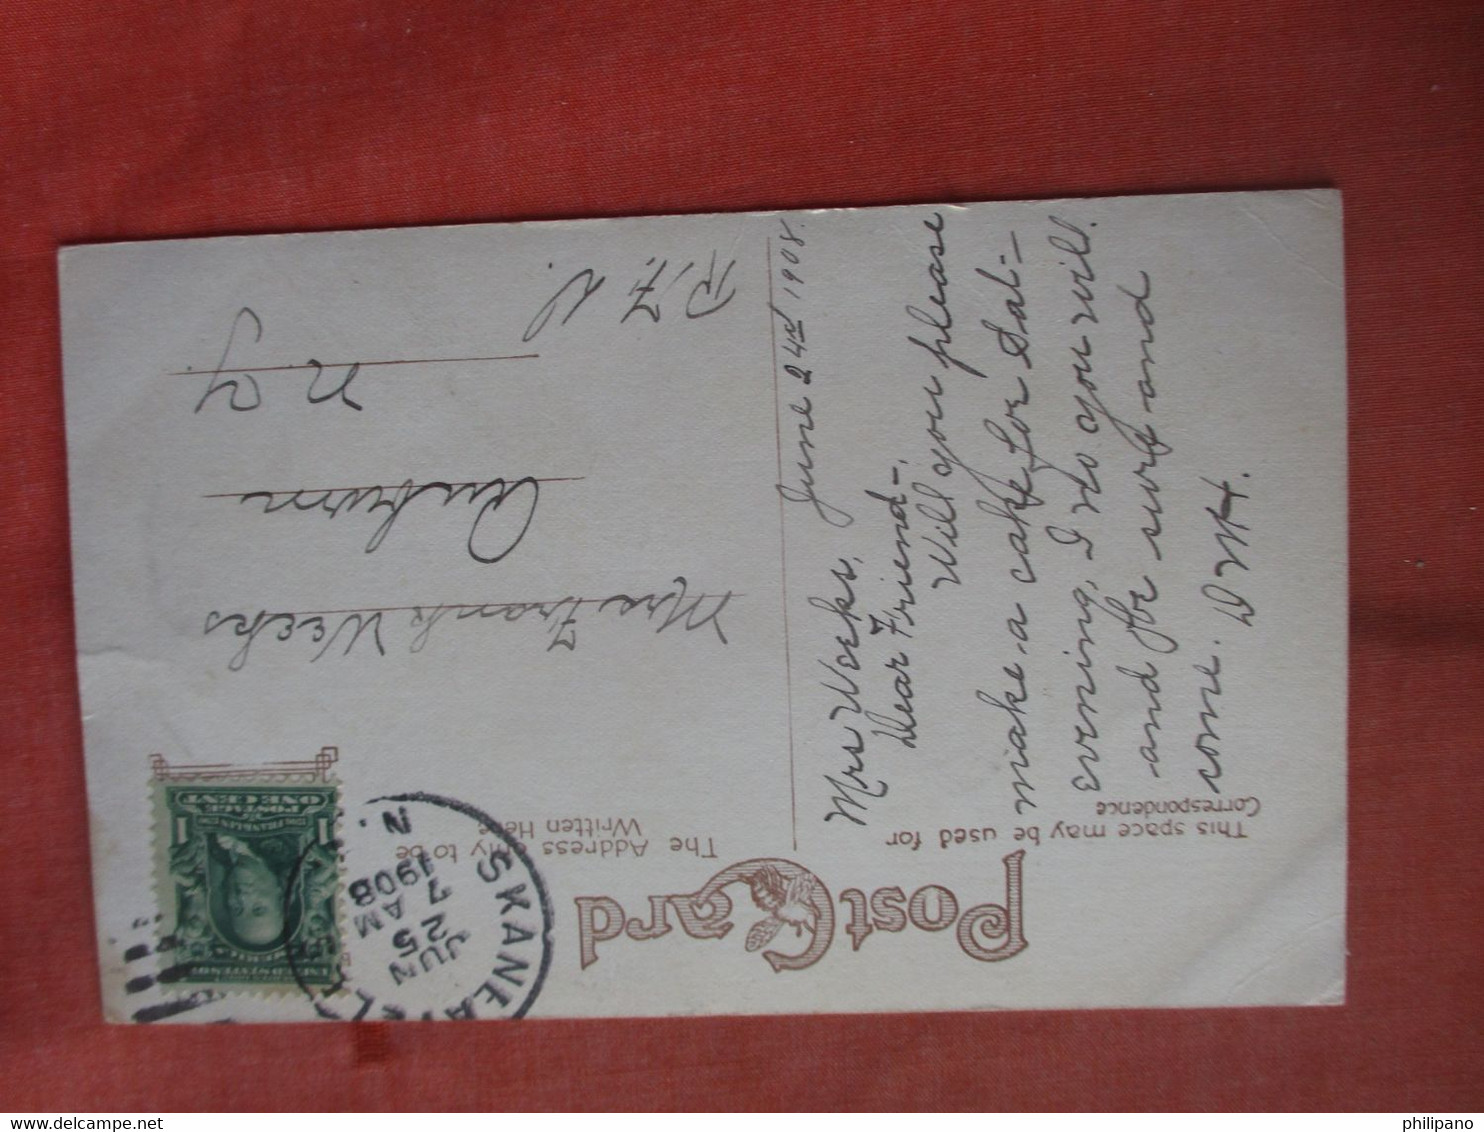 Post Card
This space may be used for
Correspondence
The Address only to be
Written Here
SKANEATELES
N.Y.
JUN
25
7 AM
1908
POSTAGE
ONE CENT
1 1
Mrs Frank Weeks
Auburn
N.Y.
R.F.D.
June 24th 1908.
Mrs Weeks,
Dear Friend-,
Will you please
make a cake for Sat-
evening, I do you will
and for surf and
come. D W H.
philipano